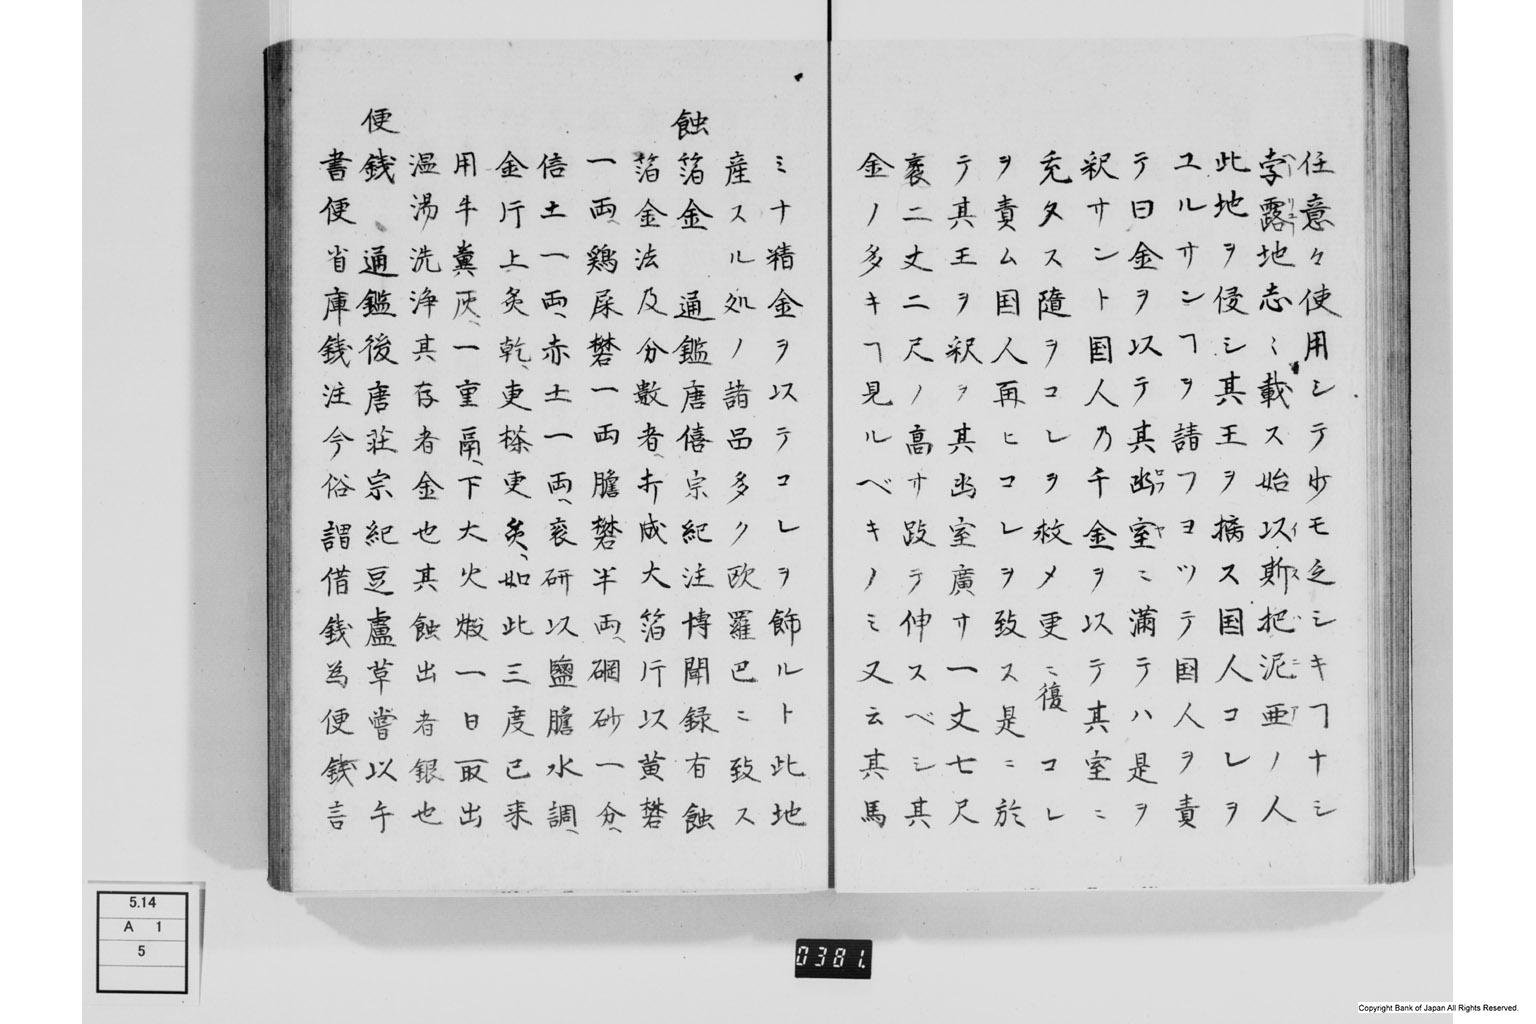 任意々使用シテ少モ乏シキヿナシ
孛露地志ニ載ス始以斯把泥亜ノ人
此地ヲ侵シ其王ヲ擒ス国人コレヲ
ユルサンヿヲ請フヨツテ国人ヲ責
テ曰金ヲ以テ其幽室ニ満テハ是ヲ
釈サント国人乃千金ヲ以テ其室ニ
充タス隨ヲコレヲ救メ更ニ復コレ
ヲ責ム国人再ヒコレヲ致ス是ニ於
テ其王ヲ釈ヲ其幽室廣サ一丈七尺
袤二丈二尺ノ高サ跂テ伸スベシ其
金ノ多キヿ見ルベキノミ又云其馬
ミナ精金ヲ以テコレヲ飾ルト此地
産スル処ノ諸品多ク欧羅巴ニ致ス
蝕箔金 通鑑唐僖宗紀注博聞録有蝕
箔金法及分數者打成大箔斤以黄礬
一両鶏屎礬一両膽礬半両硇砂一分
信土一両赤土一両衮研以鹽膽水調
金斤上炙乾更搽更炙如此三度已来
用牛糞灰一重鬲下大火煅一日取出
温湯洗浄其存者金也其蝕出者銀也
便錢 通鑑後唐莊宗紀豆盧草嘗以午
書便省庫錢注今俗謂借錢為便錢言
5.14
A 1
5
0381.
Copyright Bank of Japan All Rights Reserved.